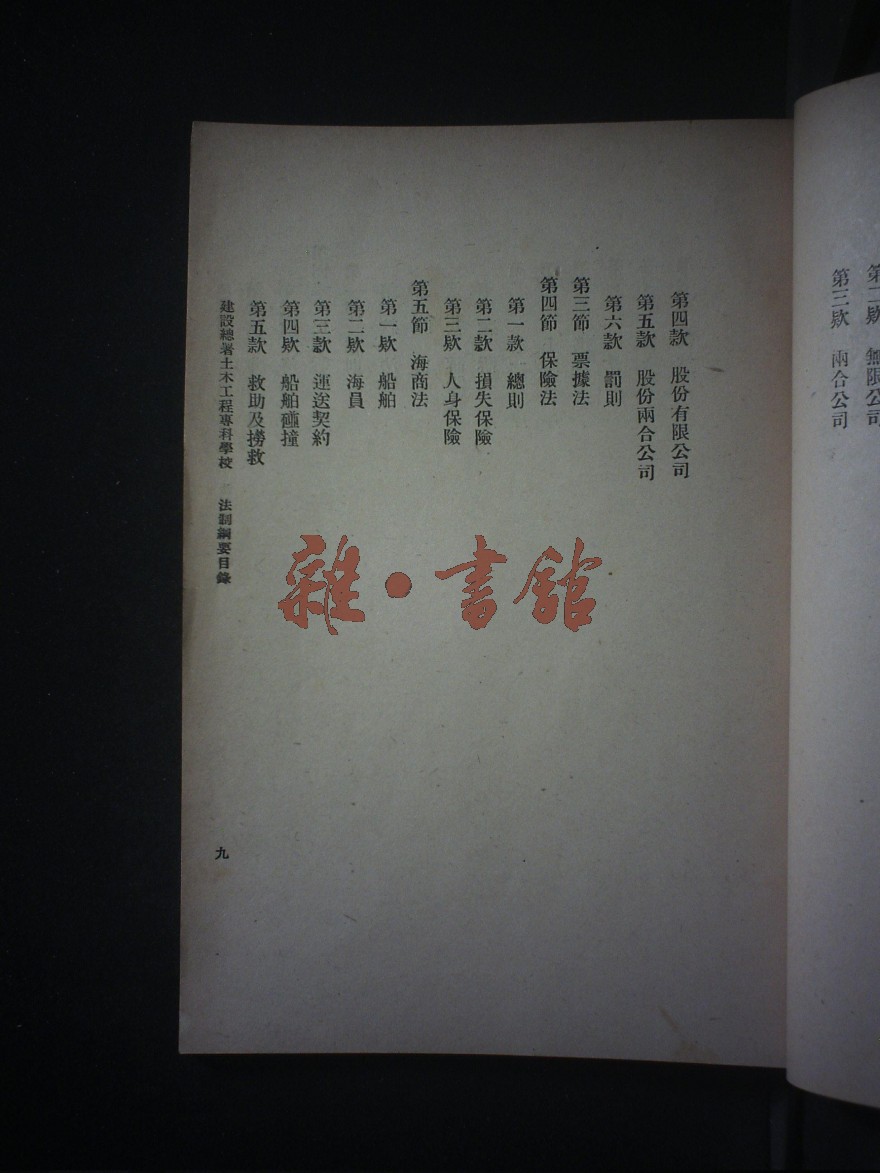 第二欵　無限公司
第三欵　兩合公司
第四款　股份有限公司
第五款　股份兩合公司
第六款　罰則
第三節　票據法
第四節　保險法
第一款　總則
第二款　損失保險
第三欵　人身保險
第五節　海商法
第一欵　船舶
第二欵　海員
第三款　運送契約
第四欵　船舶碰撞
第五款　救助及撈救
建設總署土木工程專科學校　法制綱要目錄
九
雜·書館